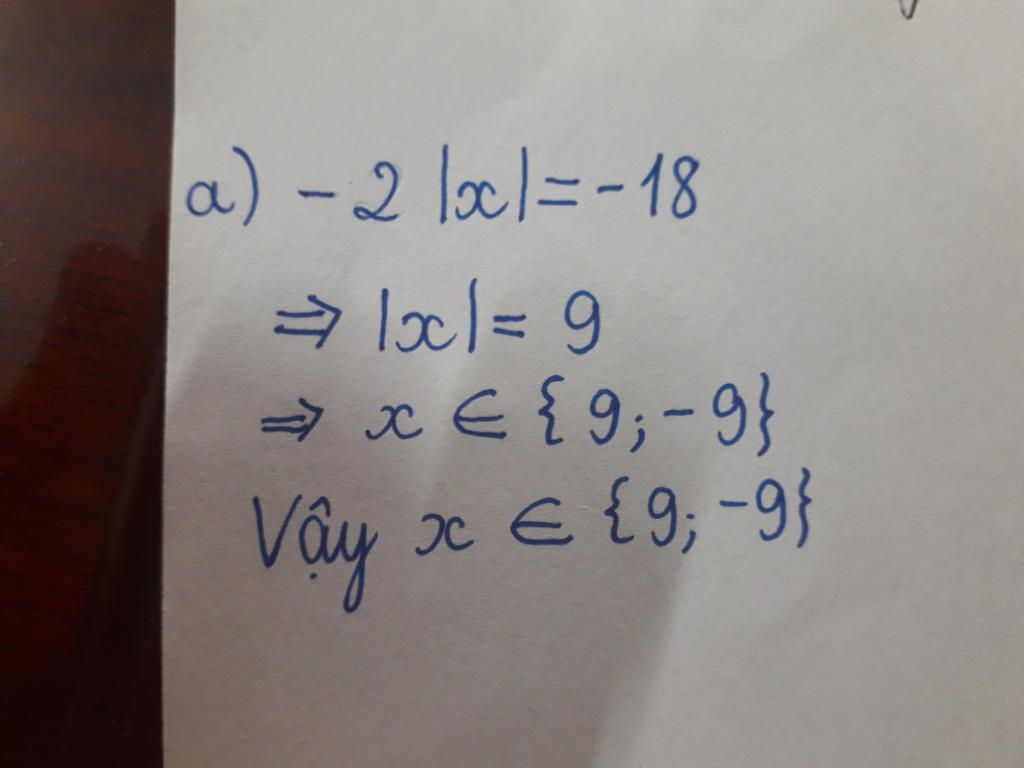 a) - 2 |x| = - 18
⇒ |x| = 9
⇒ x ∈ {9; - 9}
Vậy x ∈ {9; -9}